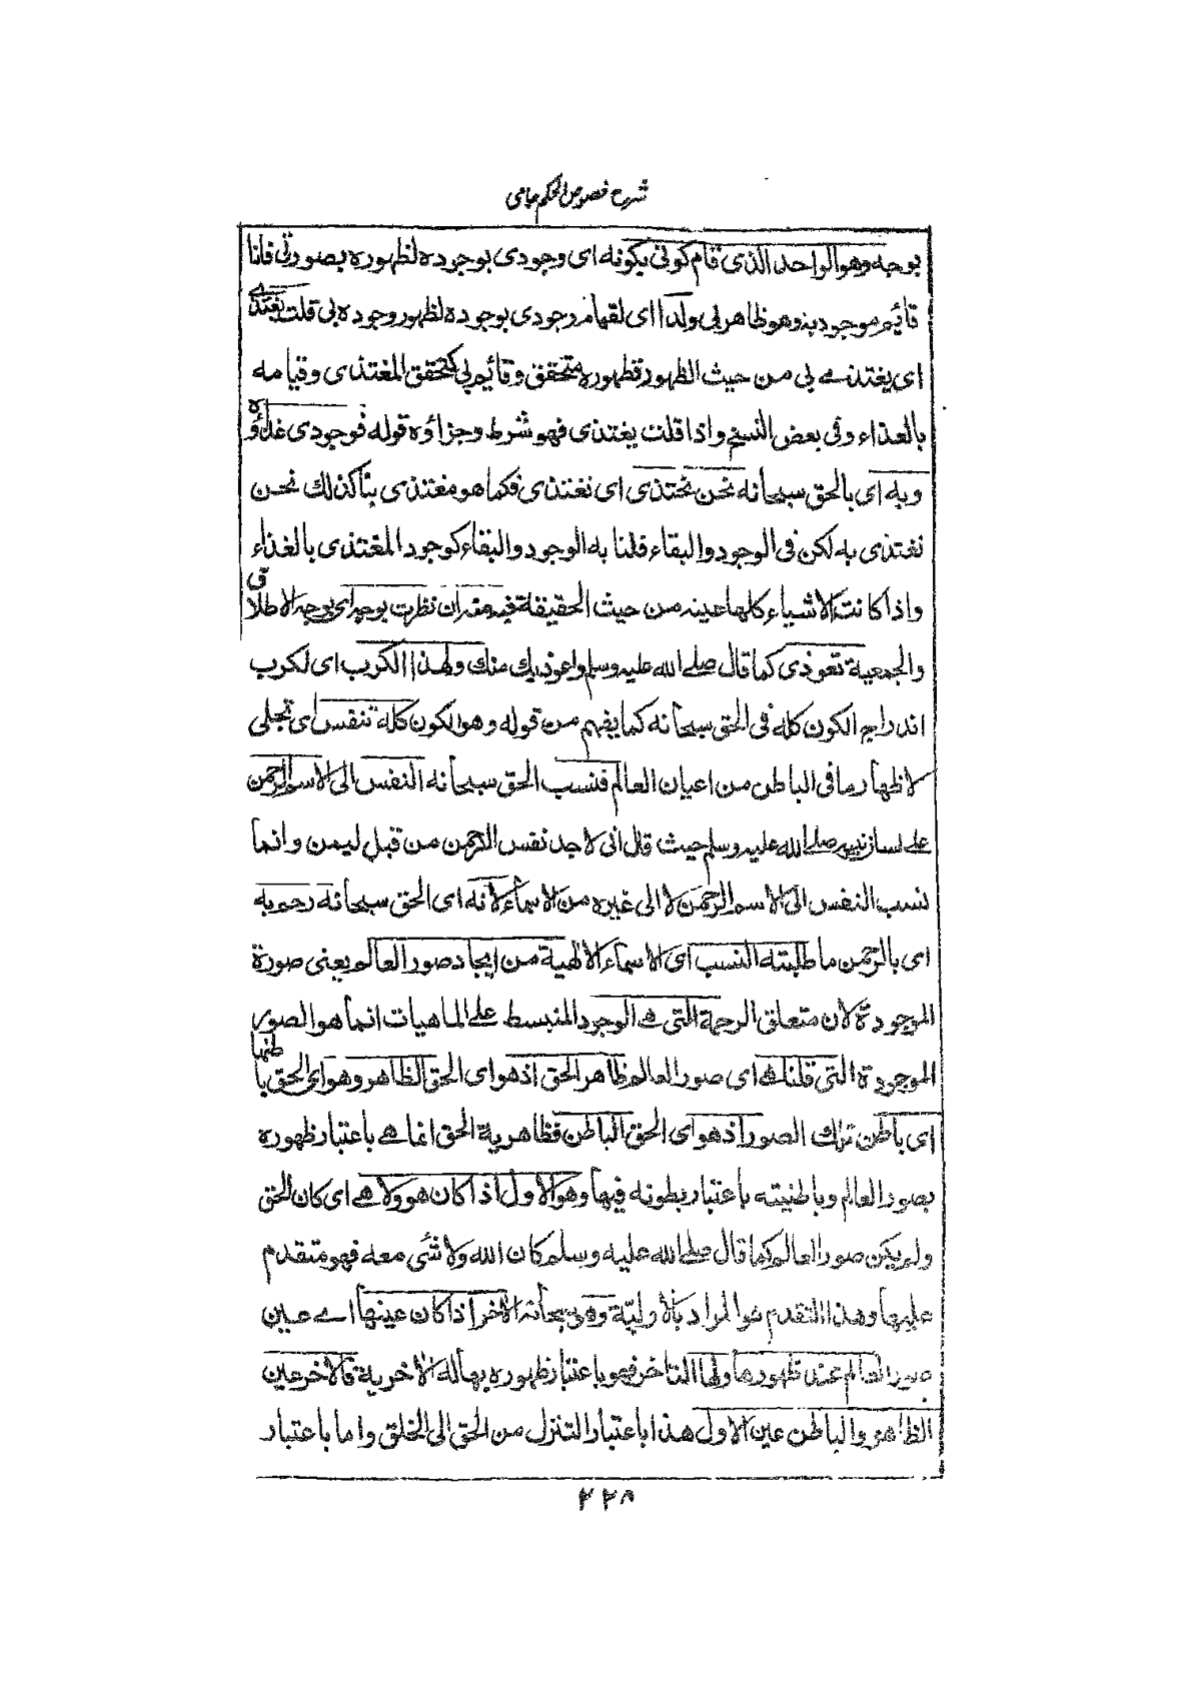 شرح فصوص الحكم جامى
بوجه وهو الواحد الذى قام كونى بكونه اى وجودى بوجوده لظهوره بصورتى فانا
قائم موجود به وهو ظاهر بى ولذا اى لقيام وجودى بوجوده لظهور وجوده بى قلت يغتذى
اى يغتذے بى من حيث الظهور فظهوره متحقق وقائم بى كتحقق المغتذى وقيامه
بالغذاء وفى بعض النسخ واذا قلت يغتذى فهو شرط وجزاؤه قوله فوجودى غذاؤه
وبه اى بالحق سبحانه نحن نحتذى اى نغتذى فكما هو مغتذى بنا كذلك نحن
نغتذى به لكن فى الوجود والبقاء فلنا به الوجود والبقاء كوجود المغتذى بالغذاء
واذا كانت الاشياء كلها عينه من حيث الحقيقة فبه منه ان نظرت بوجه اى بوجه الاطلاق
والجمعية تعوذى كما قال صلے الله عليه وسلم واعوذ بك منك ولهذا الكرب اى لكرب
اندراج الكون كله فى الحق سبحانه كما يفهم من قوله وهو الكون كله تنفس اى تجلى
لاظهار ما فى الباطن من اعيان العالم فنسب الحق سبحانه النفس الى الاسم الرحمن
علے لسان نبيه صلے الله عليه وسلم حيث قال انى لاجد نفس الرحمن من قبل ليمن وانما
نسب النفس الى الاسم الرحمن لا الى غيره من الاسماء لانه اى الحق سبحانه رحم به
اى بالرحمن ما طلبته النسب اى الاسماء الالهية من ايجاد صور العالم يعنى صورة
الموجودة لان متعلق الرحمة التى هے الوجود المنبسط علے الماهيات انما هو الصور
الموجودة التى قلنا هے اى صور العالم ظاهر الحق اذ هو اى الحق الظاهر وهو اى الحق باطنها
اى باطن تلك الصور اذ هو اى الحق الباطن فظاهرية الحق انما هے باعتبار ظهوره
بصور العالم وباطنيته باعتبار بطونه فيها وهو الاول اذ كان هو ولا هے اى كان الحق
ولم يكن صور العالم كما قال صلے الله عليه وسلم كان الله ولا شى معه فهو متقدم
عليها وهذا التقدم هو المراد بالاولية وهو سبحانه الاخر اذ كان عينها اے عين
صور العالم عند ظهورها ولها التاخر فهو باعتبار ظهوره بها له الاخرية فالاخر عين
الظاهر والباطن عين الاول هذا باعتبار التنزل من الحق الى الخلق واما باعتبار
٢٢٨